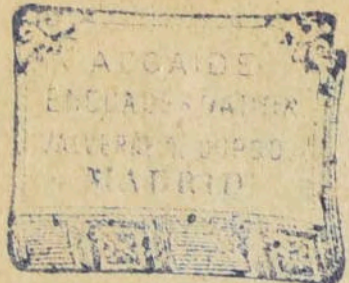 ALCAIDE
ENCUADERNADOR
VALVERDE,
MADRID